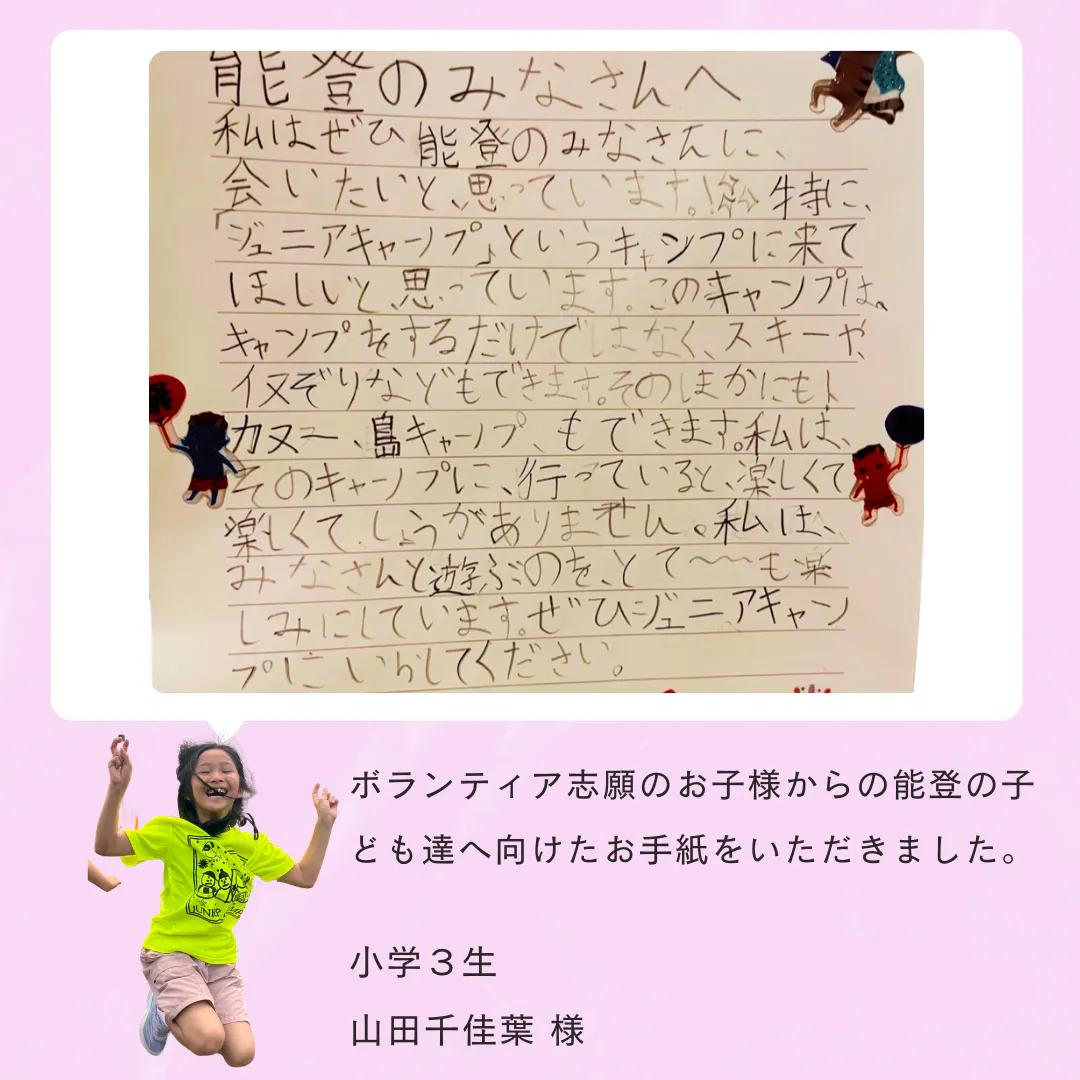 能登のみなさんへ
私はぜひ能登のみなさんに、
会いたいと、思っています。!特に、
「ジュニアキャンプ」というキャンプに来て
ほしいと、思っています。このキャンプは、
キャンプをするだけではなく、スキーや、
イヌぞりなどもできます。そのほかにも!
カヌー、島キャンプ、もできます。私は、
そのキャンプに、行っていると、楽しくて
楽しくて、しょうがありません。私は、
みなさんと遊ぶのを、とて〜〜も楽
しみにしています。ぜひジュニアキャン
プに
ください。
ボランティア志願のお子様からの能登の子
ども達へ向けたお手紙をいただきました。
小学３生
山田千佳葉 様